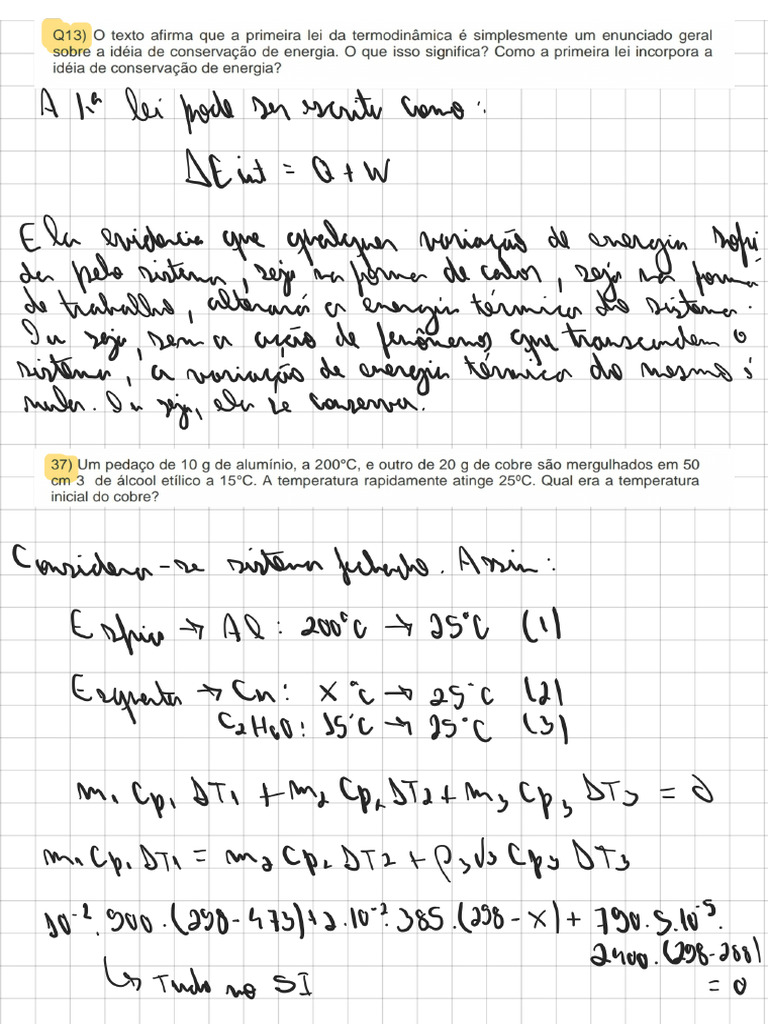 Q13) O texto afirma que a primeira lei da termodinâmica é simplesmente um enunciado geral
sobre a idéia de conservação de energia. O que isso significa? Como a primeira lei incorpora a
idéia de conservação de energia?
A 1.ª lei pode ser escrita como:
ΔEint = Q + W
Ela evidencia que qualquer variação de energia sofri
da pelo sistema, seja na forma de calor, seja na forma
de trabalho, alterará a energia térmica do sistema.
Ou seja, sem a ação de fenômenos que transcendem o
sistema, a variação de energia térmica do mesmo é
nula. Ou seja, ela se conserva.
37) Um pedaço de 10 g de alumínio, a 200°C, e outro de 20 g de cobre são mergulhados em 50
cm 3 de álcool etílico a 15°C. A temperatura rapidamente atinge 25ºC. Qual era a temperatura
inicial do cobre?
Considera-se sistema fechado. Assim:
Esfria → Al : 200°C → 25°C (1)
Esquenta → Cu: X °C → 25°C (2)
C2H6O: 15°C → 25°C (3)
m1 Cp1 ΔT1 + m2 Cp2 ΔT2 + m3 Cp3 ΔT3 = 0
m1 Cp1 ΔT1 = m2 Cp2 ΔT2 + ρ3 V3 Cp3 ΔT3
10⁻². 900 . (298-473) + 2.10⁻². 385 . (298 - X) + 790. 5.10⁻⁵.
2400. (298-288)
↳ Tudo no SI
= 0